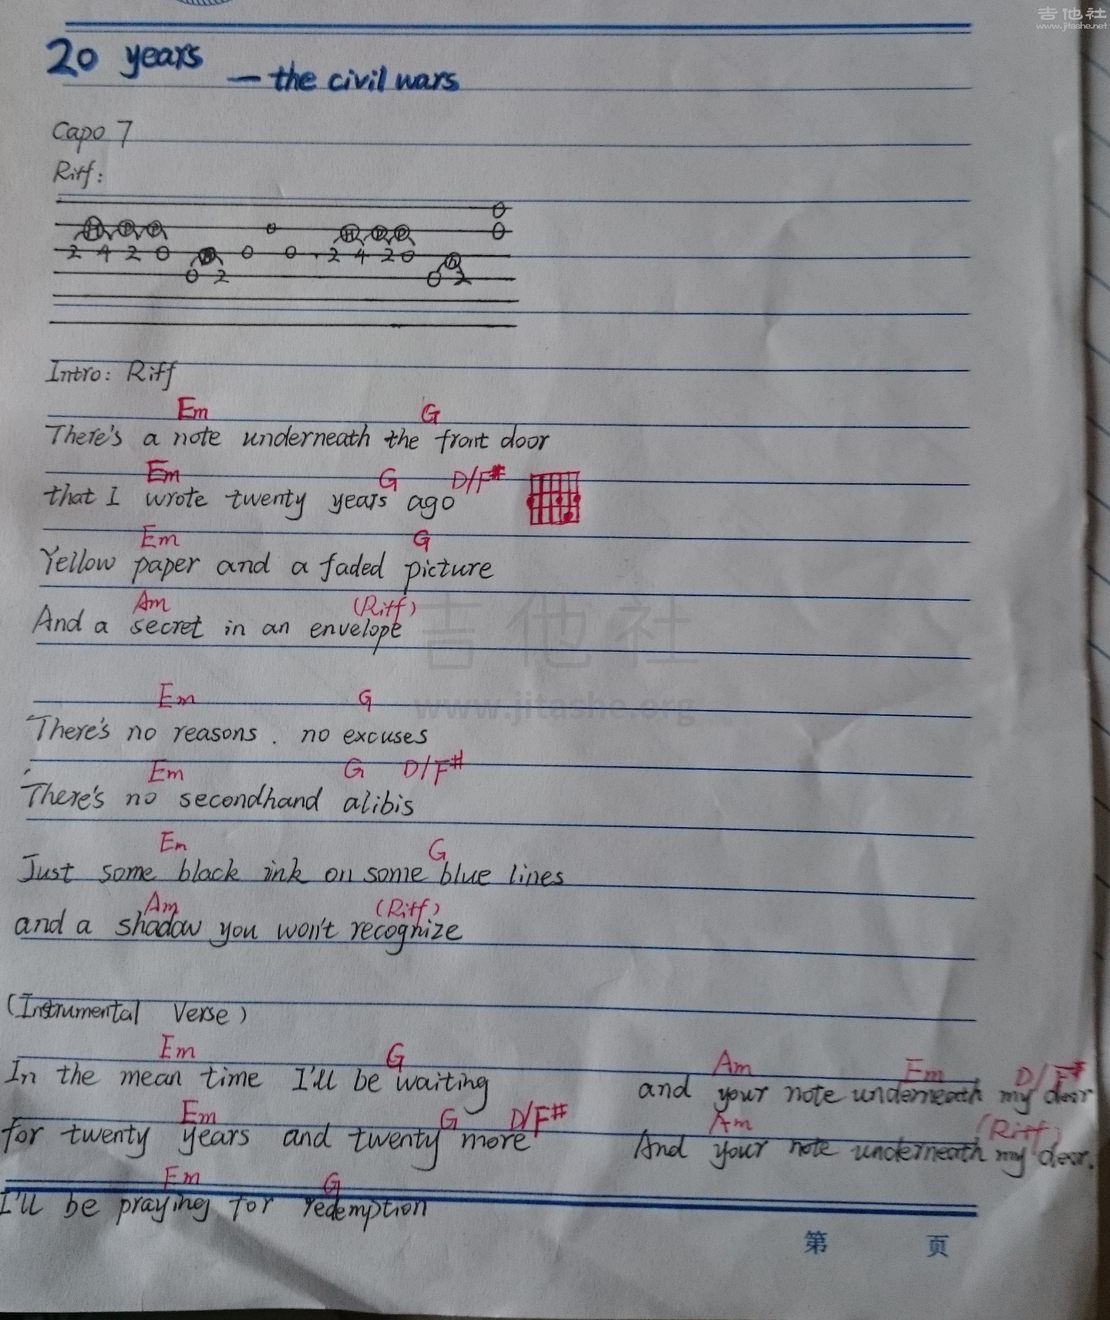 吉他社
www.jitashe.net
20 years
— the civil wars
Capo 7
Riff:
0
H P P 0 H P P 0
2 4 2 0 H 0 0 2 4 2 0 H
0 2 0 2
Intro: Riff
Em G
There's a note underneath the front door
Em G D/F#
that I wrote twenty years ago
Em G
Yellow paper and a faded picture
Am (Riff)
And a secret in an envelope
吉他社
www.jitashe.org
Em G
There's no reasons. no excuses
Em G D/F#
There's no secondhand alibis
Em G
Just some black ink on some blue lines
Am (Riff)
and a shadow you won't recognize
(Instrumental Verse)
Em G
In the mean time I'll be waiting
Em G D/F#
for twenty years and twenty more
Em G
I'll be praying for redemption
Am Em D/F#
and your note underneath my door
Am (Riff)
And your note underneath my door.
第 页